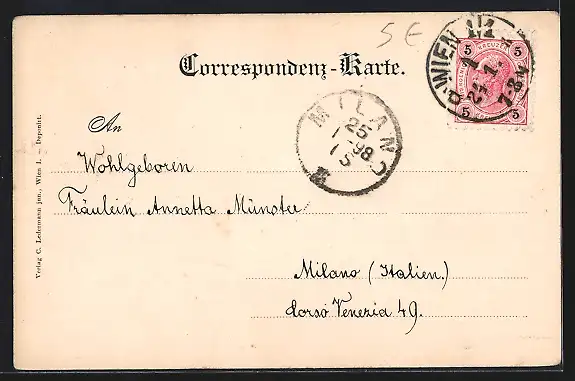 5 €
Correspondenz-Karte.
WIEN 1/1
5 KREUZER 5
5 5
7-8
MILANO
25
1-98
An
Wohlgeboren
Fräulein Annetta Münster
Milano (Italien.)
Corso Venezia 49.
Verlag C. Ledermann jun., Wien I. — Deponirt.